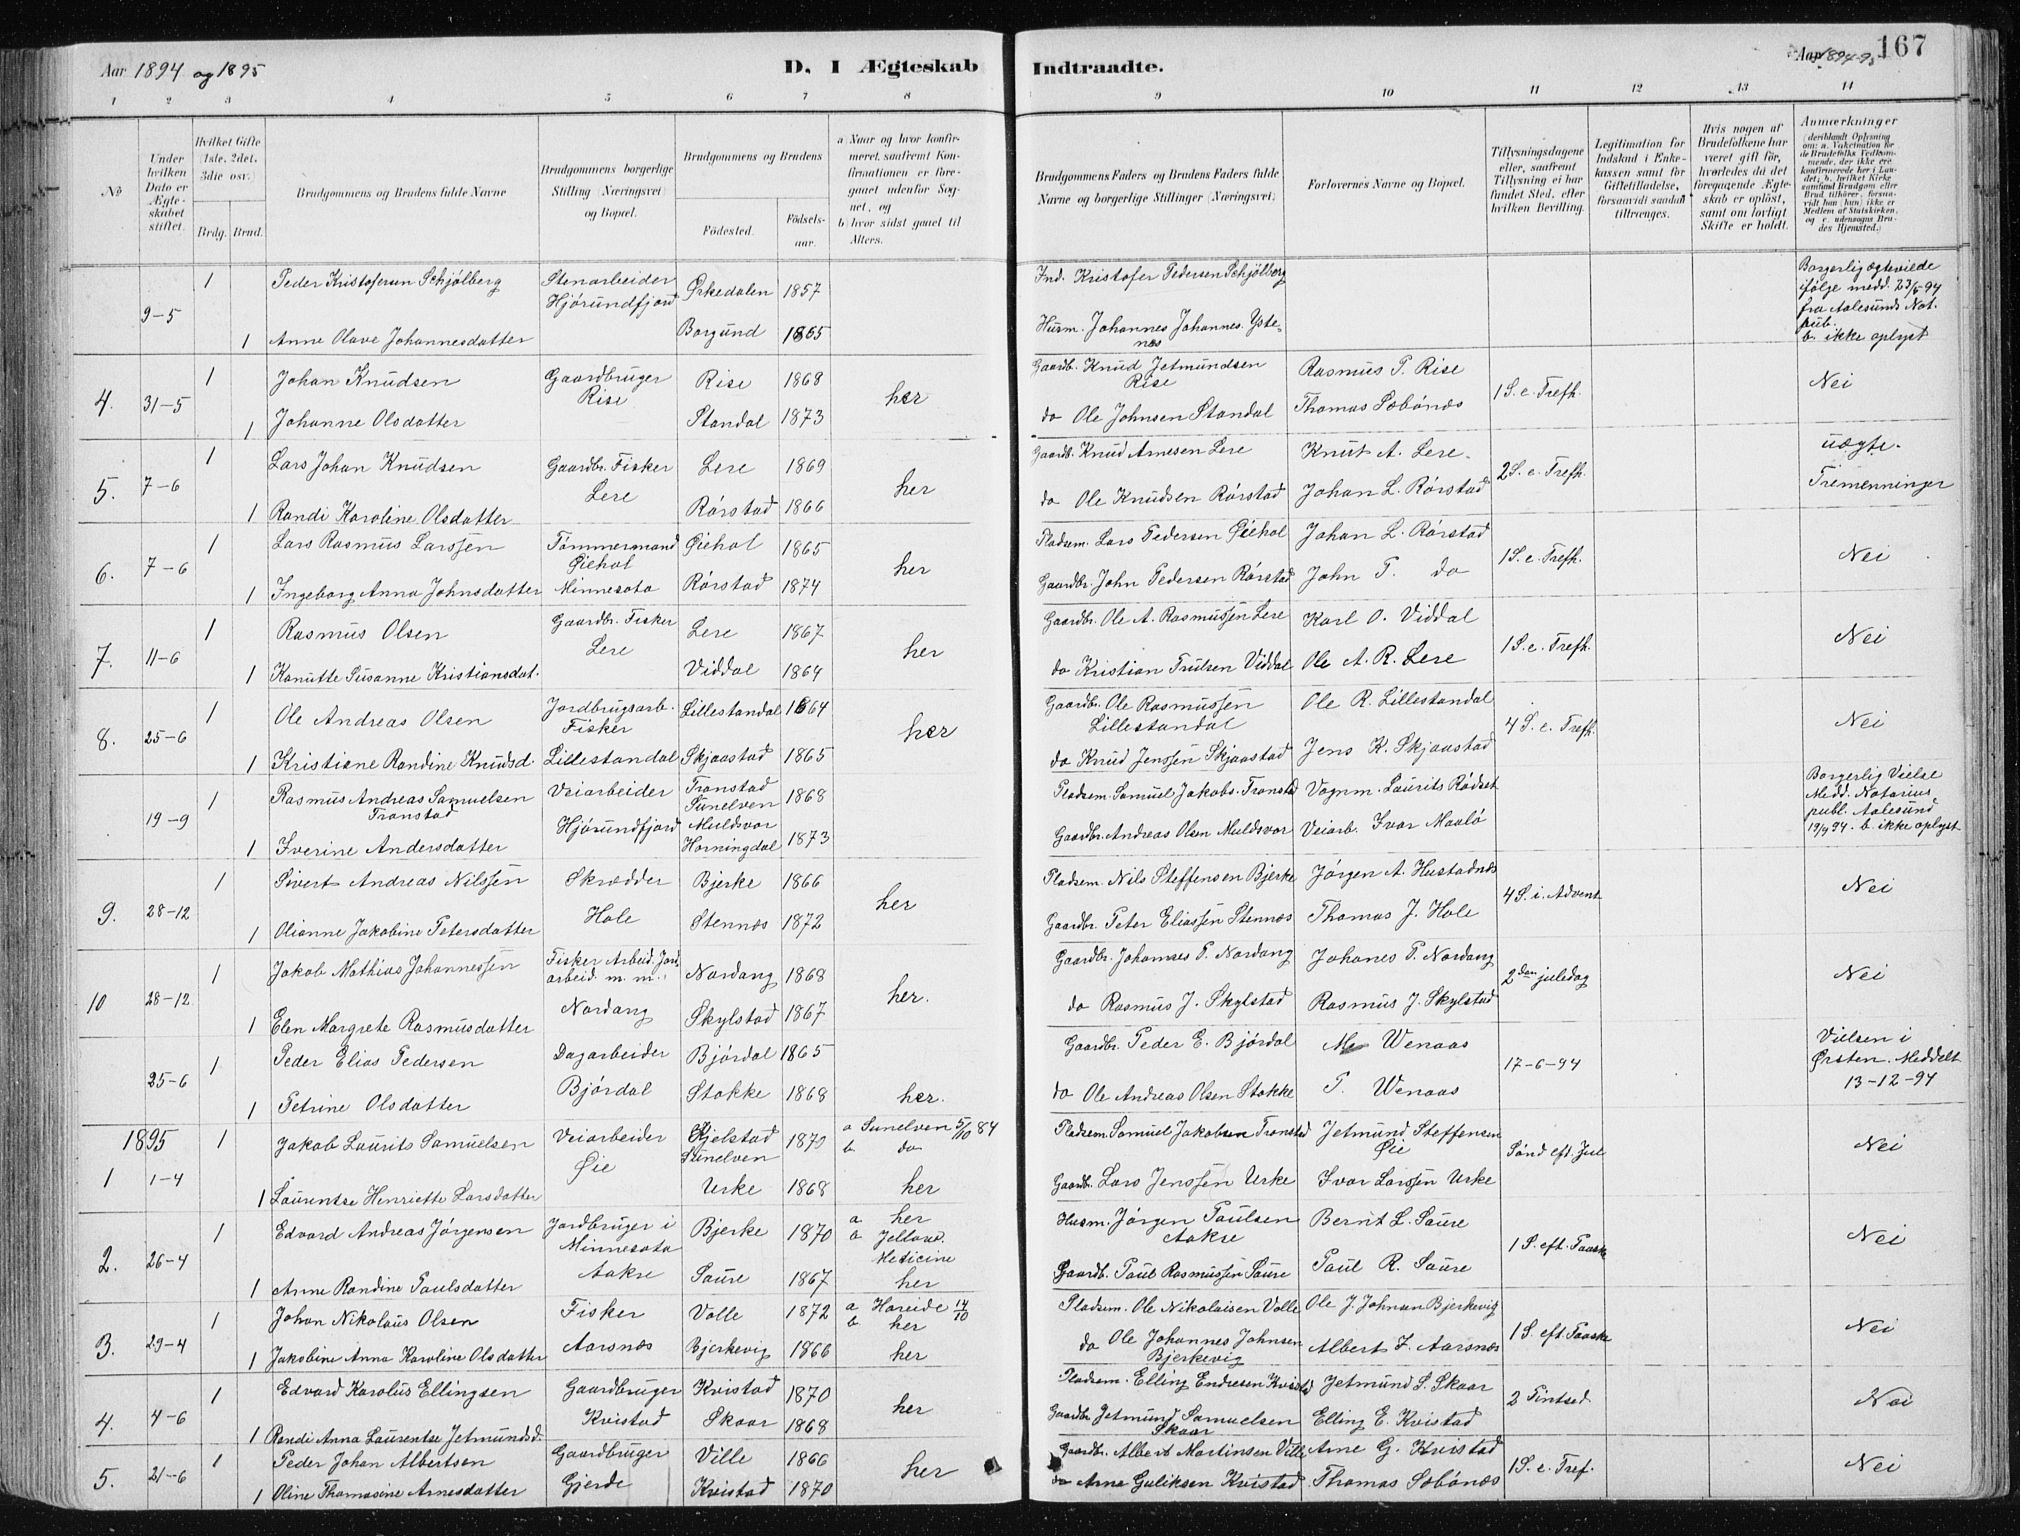 Aar 1894 og 1895
D. I Ægteskab Indtraadte.
Aar 1894-95
167
1 2 3 4 5 6 7 8 9 10 11 12 13 14
No
Under hvilken Dato er Ægteskabet stiftet.
Hvilket Gifte (1ste, 2det, 3die osv.)
Brdg. Brud.
Brudgommens og Brudens fulde Navne
Brudgommens borgerlige Stilling (Næringsvei) og Bopæl.
Brudgommens og Brudens
Fødested.
Fødselsaar.
a Naar og hvor konfirmeret, saafremt Konfirmationen er foregaaet udenfor Sognet, og
b hvor sidst gaaet til Alters.
Brudgommens Faders og Brudens Faders fulde Navne og borgerlige Stillinger (Næringsvei)
Forlovernes Navne og Bopæl.
Tillysningsdagene eller, saafremt Tillysning ei har fundet Sted, efter hvilken Bevilling.
Legitimation for Indskud i Enkekassen samt for Giftetilladelse, forsaavidt saadan tiltrænges.
Hvis nogen af Brudefolkene har været gift før, hvorledes da det foregaaende Ægteskab er opløst, samt om lovligt Skifte er holdt.
Anmærkninger
(deriblandt Oplysning om: a. Vakcination for de Brudefolks Vedkommende, der ikke ere konfirmerede her i Landet; b. hvilket Kirkesamfund Brudgom eller Brud tilhører, forsaavidt han (hun) ikke er Medlem af Statskirken, og c. udensogns Brudes Hjemsted.)
9-5 1 Peder Kristofersen Schjølberg Stenarbeider Hjørundfjord Ørkedalen 1857 Ind. Kristofer Pedersen Schjølberg Borgerlig ægteviede ifølge medd. 23/5-94 fra Aalesunds Not. pub. b. ikke oplyst
1 Anne Olave Johannesdatter Borgund 1865 Husm. Johannes Johannes. Ystenes
4. 31-5 1 Johan Knudsen Gaardbruger Rise Rise 1868 her Gaardb. Knud Jetmundsen Rise Rasmus P. Rise 1 S. e. Trefh. Nei
1 Johanne Olsdatter Standal 1873 do Ole Johnsen Standal Thomas Sæbønæs
5. 7-6 1 Lars Johan Knudsen Gaardbr. Fisker Lere Lere 1869 her Gaardb. Knud Arnesen Lere Knut A. Lere 2 S. e. Trefh. uægte. Tremenninger
1 Randi Karoline Olsdatter Rørstad 1866 do Ole Knudsen Rørstad Johan L. Rørstad
6. 7-6 1 Lars Rasmus Larssen Tømmermand Øiehol Minnesota Øiehol 1865 her Pladsem. Lars Pedersen Øiehol Johan L. Rørstad 1 S. e. Trefh. Nei
1 Ingeborg Anna Johnsdatter Rørstad 1874 Gaardbr. John Pedersen Rørstad John P. do
7. 11-6 1 Rasmus Olsen Gaardbr. Fisker Lere Lere 1867 her Gaardbr. Ole A. Rasmussen Lere Karl O. Viddal 1 S. e. Trefh. Nei
1 Kanutte Susanne Kristiansdat. Viddal 1864 do Kristian Trulsen Viddal Ole A. R. Lere
8. 25-6 1 Ole Andreas Olsen Jordbrugsarb. Fisker Lillestandal Lillestandal 1864 her Gaardbr. Ole Rasmussen Lillestandal Ole R. Lillestandal 4 S. e. Trefh. Nei
1 Kristiane Randine Knudsd. Skjaastad 1865 do Knud Jenssen Skjaastad Jens K. Skjaastad
19-9 1 Rasmus Andreas Samuelsen Tronstad Veiarbeider Hjørundfjord Tronstad Sunelven 1868 Pladsem. Samuel Jakobs. Tronstad Vognm. Laurits Rødset Borgerlig Vielse Medd. Notarius publ. Aalesund 19/9 94. b. ikke oplyst
1 Iverine Andersdatter Muldsvor Horningdal 1873 Gaardbr. Andreas Olsen Muldsvor Veiarb. Ivar Maalø
9. 28-12 1 Sivert Andreas Nilssen Skrædder Hole Bjerke 1866 her Pladsem. Nils Steffensen Bjerke Jørgen A. Hustadnæs 4 S. i. Advent Nei
1 Olianne Jakobine Petersdatter Stennæs 1872 Gaardbr. Peter Eliassen Stennæs Thomas J. Hole
10 28-12 1 Jakob Mathias Johannessen Fisker Arbeid. Jordarbeid. m. m. Nordang Nordang 1868 her. Gaardbr. Johannes P. Nordang Johanes P. Nordang 2den juledag Nei
1 Elen Margrete Rasmusdatter Skylstad 1867 do Rasmus J. Skylstad Rasmus J. Skylstad
25-6 1 Peder Elias Pedersen Dagarbeider Bjørdal Bjørdal 1865 Gaardbr. Peder E. Bjørdal Wenaas 17-6-94 Vielsen i Ørsten. Meddelt 13-12-94
1 Petrine Olsdatter Stokke 1868 her. do Ole Andreas Olsen Stokke P. Wenaas
1895
1 1-4 1 Jakob Laurits Samuelsen Veiarbeider Øie Kjelstad Sunelven 1870 a Sunelven 5/10 84 b do Pladsem. Samuel Jakobsen Tronstad Jetmund Steffensen Øie Sønd eft. Jul Nei
1 Laurentse Henriette Larsdatter Urke 1868 her Gaardb. Lars Jenssen Urke Ivar Larssen Urke
2. 26-4 1 Edvard Andreas Jørgensen Jordbruger i Minnesota Aakre Bjerke 1870 a her b Jellow. Meticine Husm. Jørgen Paulsen Aakre Bernt L. Saure 1 S. eft. Paaske Nei
1 Anne Randine Paulsdatter Saure 1867 her Gaardb. Paul Rasmussen Saure Paul R. Saure
3. 29-4 1 Johan Nikolaus Olsen Fisker Aarsnæs Volle 1872 a Hareide 14/10 b her Pladsem. Ole Nikolaisen Volle Ole J. Johnsen Bjerkevig 1 S. eft. Paaske Nei
1 Jakobine Anna Karoline Olsdatter Bjerkevig 1866 her do Ole Johannes Johnsen Bjerkevig Albert I. Aarsnæs
4. 4-6 1 Edvard Karolus Ellingsen Gaardbruger Kvistad Kvistad 1870 her Pladsem. Elling Endresen Kvistad Jetmund S. Skaar 2 Pintsed. Nei
1 Randi Anna Laurentse Jetmundsd. Skaar 1868 Gaardbr Jetmund Samuelsen Skaar Elling E. Kvistad
5. 21-6 1 Peder Johan Albertsen Gaardbruger Gjerde Ville 1866 her Gaardbr. Albert Martinsen Ville Arne G. Kvistad 1 S. e. Tref. Nei
1 Oline Thomasine Arnesdatter Kvistad 1870 do Arne Guliksen Kvistad Thomas Sæbønæs